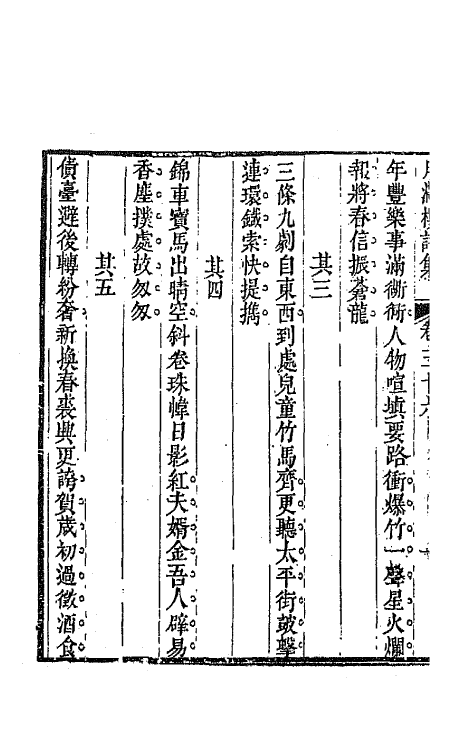 詩集
卷三十六
年豐樂事滿衢衖人物喧塡要路衝爆竹一聲星火爛
報將春信振蒼龍
其三
三條九劇自東西到處兒童竹馬齊更聽太平街鼓擊
連環鐵索快提攜
其四
錦車寶馬出晴空斜卷珠幃日影紅夫婿金吾人辟易
香塵撲處故匆匆
其五
債臺避後轉紛奢新換春裘興更誇賀歲初過徵酒食